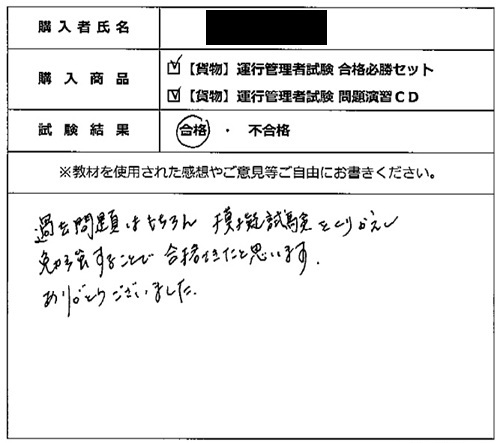 購入者氏名
購入商品
【貨物】運行管理者試験 合格必勝セット
【貨物】運行管理者試験 問題演習CD
試験結果
合格 ・ 不合格
※教材を使用された感想やご意見等ご自由にお書きください。
過去問題はもちろん 模擬試験をくりかえし
勉強することで 合格できたと思います.
ありがとうございました.